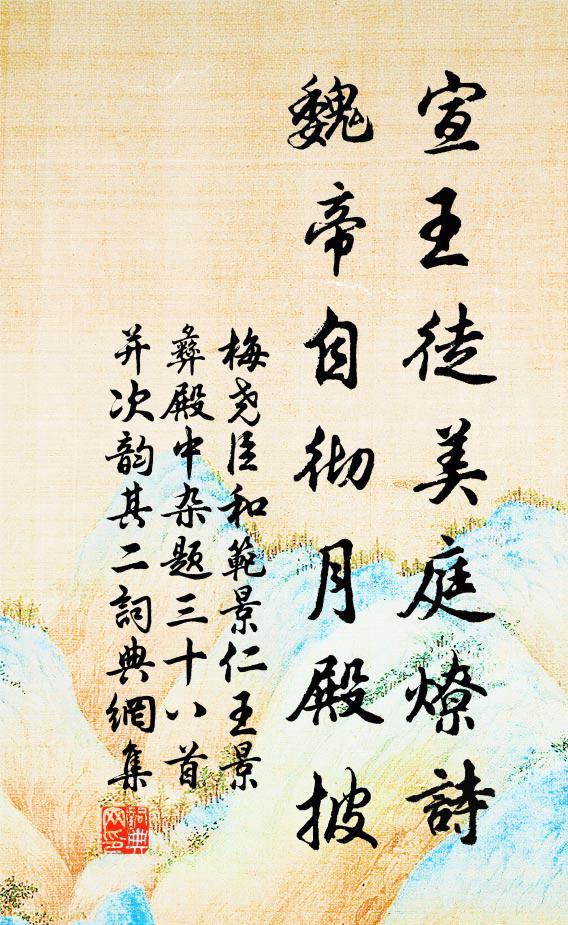 宣王徒美庭燎詩
魏帝自彻月殿披
梅尧臣和範景仁王景
彞殿中杂题三十八首
并次韵其二詞典網集